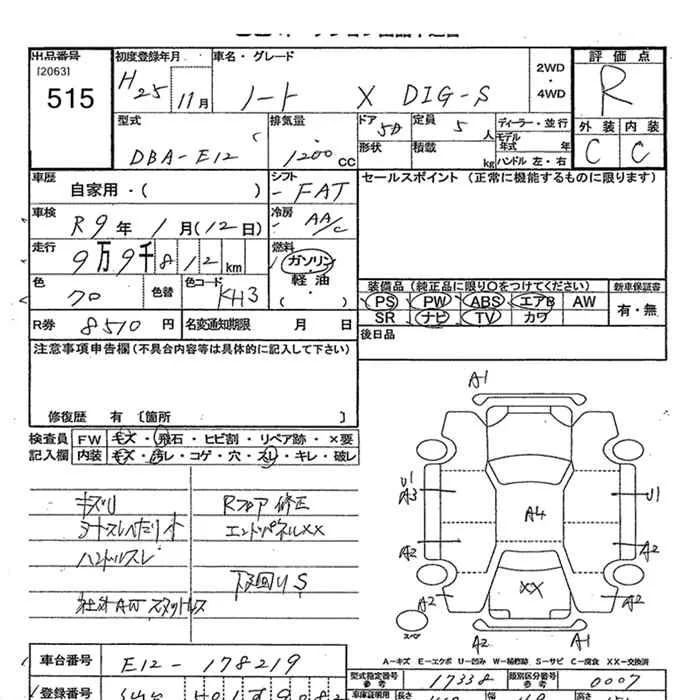 出品番号
[2063]
515
初度登録年月
H25 11月
車名・グレード
ノート X DIG-S
2WD
・
4WD
評価点
R
外装 内装
C C
型式
DBA-E12
排気量
1200 CC
ドア
5D
定員
5 人
形状
積載
kg
ディーラー・並行
モデル年式 年
ハンドル 左・右
車歴
自家用・( )
シフト
FAT
セールスポイント (正常に機能するものに限ります)
車検
R9年 1月(12日)
冷房
AA/C
走行
9万9千812 km
燃料
ガソリン
軽油
( )
色
色替
色コード
KH3
装備品(純正品に限り○をつけてください)
PS PW ABS エアB AW
SR ナビ TV カワ
新車保証書
有・無
R券 8510 円
名変通知期限 月 日
後日品
注意事項申告欄(不具合内容等は具体的に記入して下さい)
修復歴 有 [箇所 ]
検査員
記入欄
FW モズ・飛石・ヒビ割・リペア跡・×要
内装 モズ・汚レ・コゲ・穴・スレ・キレ・破レ
キズリ
ハンドルスレ
Rフロア修正
エンドパネルXX
下回りUS
A1
U1
A3
A2
A2
A4
U1
A2
A2
XX
A2
A1
スペア
A−キズ E−エクボ U−凹み W−補修跡 S−サビ C−腐食 XX−交換済
車台番号
E12-178219
型式指定番号
参考
17338
類別区分番号
参考
0007
登録番号
車庫証明用
参考
長さ
幅
高さ